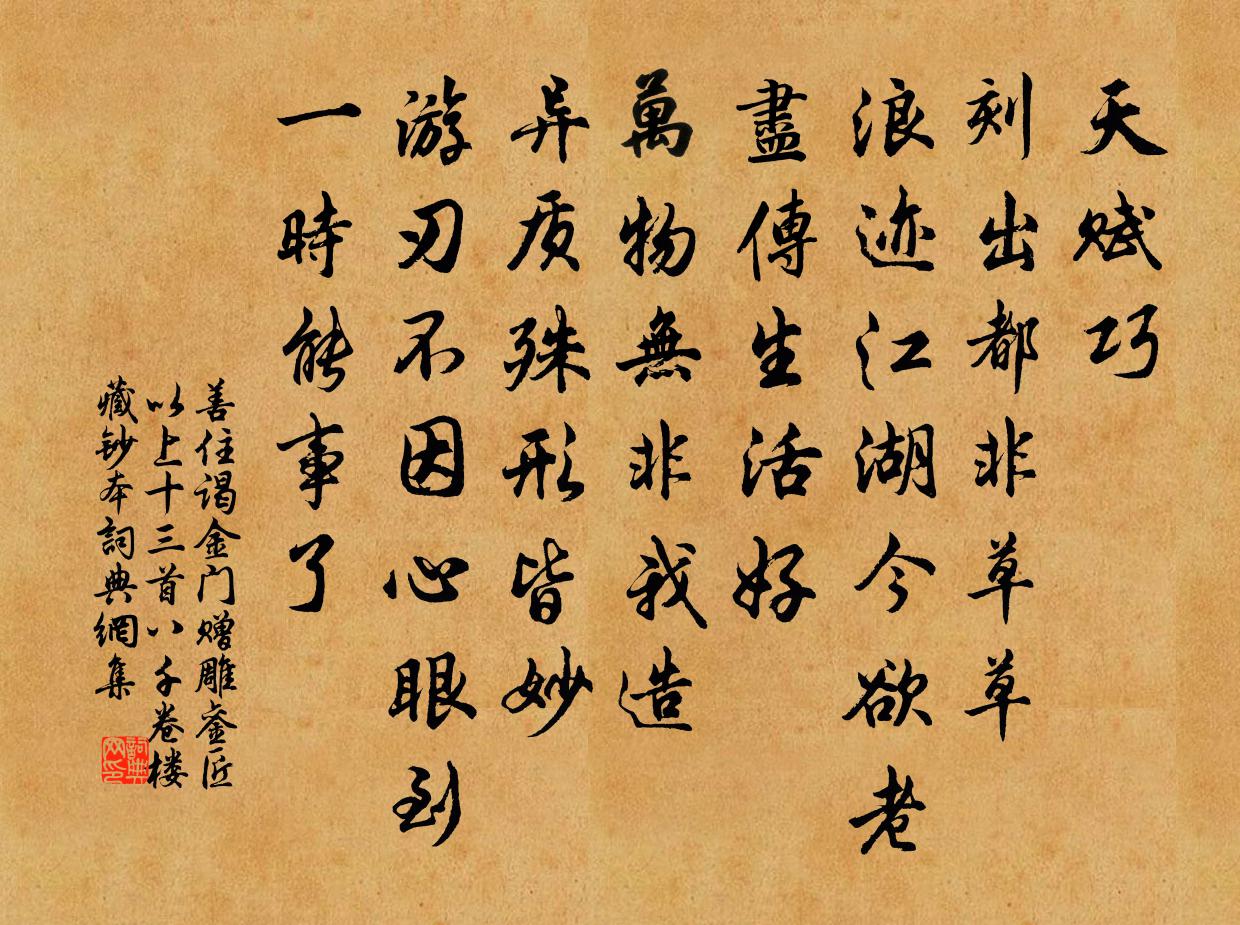 天赋巧
刻出都非草草
浪迹江湖今欲老
盡傳生活好
萬物無非我造
异质殊形皆妙
游刃不因心眼到
一時能事了
善住谒金门赠雕銮匠
以上十三首八千卷楼
藏钞本詞典網集
詞典
网印